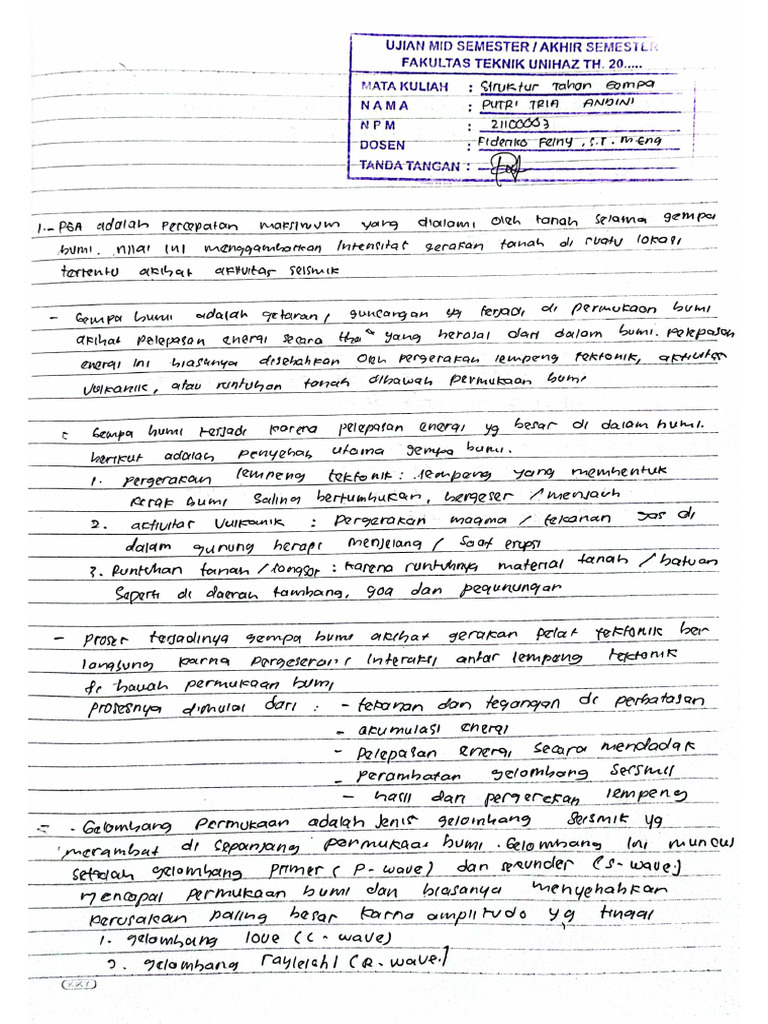 UJIAN MID SEMESTER / AKHIR SEMESTER
FAKULTAS TEKNIK UNIHAZ TH. 20.....
MATA KULIAH : Struktur Tahan Gempa
NAMA : PUTRI TRIA ANDINI
NPM : 21100003
DOSEN : Fidenko Feiny, S.T. M.Eng
TANDA TANGAN :
1.- PGA adalah percepatan maksimum yang dialami oleh tanah selama gempa
bumi. nilai ini menggambarkan intensitas gerakan tanah di suatu lokasi
tertentu akibat aktivitas seismik
- Gempa bumi adalah getaran / guncangan yg terjadi di permukaan bumi
akibat pelepasan energi secara yang berasal dari dalam bumi. pelepasan
energi ini biasanya disebabkan oleh pergerakan lempeng tektonik, aktivitas
vulkanik, atau runtuhan tanah dibawah permukaan bumi
Gempa bumi terjadi karena pelepasan energi yg besar di dalam bumi.
berikut adalah penyebab utama gempa bumi.
1. pergerakan lempeng tektonik : lempeng yang membentuk
kerak bumi saling bertumbukan, bergeser / menjauh
2. aktivitas vulkanik : pergerakan magma / tekanan gas di
dalam gunung berapi menjelang / saat erupsi
3. Runtuhan tanah / longsor : karena runtuhnya material tanah / batuan
seperti di daerah tambang, goa dan pegunungan
- proses terjadinya gempa bumi akibat gerakan pelat tektonik ber
langsung karna pergeseran / interaksi antar lempeng tektonik
di bawah permukaan bumi
prosesnya dimulai dari : - tekanan dan tegangan di perbatasan
- akumulasi energi
- pelepasan energi secara mendadak
- perambatan gelombang seismik
- hasil dari pergerakan lempeng
- Gelombang permukaan adalah jenis gelombang seismik yg
merambat di sepanjang permukaan bumi. Gelombang ini muncul
setelah gelombang primer (P-wave) dan sekunder (S-wave)
mencapai permukaan bumi dan biasanya menyebabkan
kerusakan paling besar karna amplitudo yg tinggi
1. gelombang love (L-wave)
2. gelombang rayleigh (R-wave)
KKY